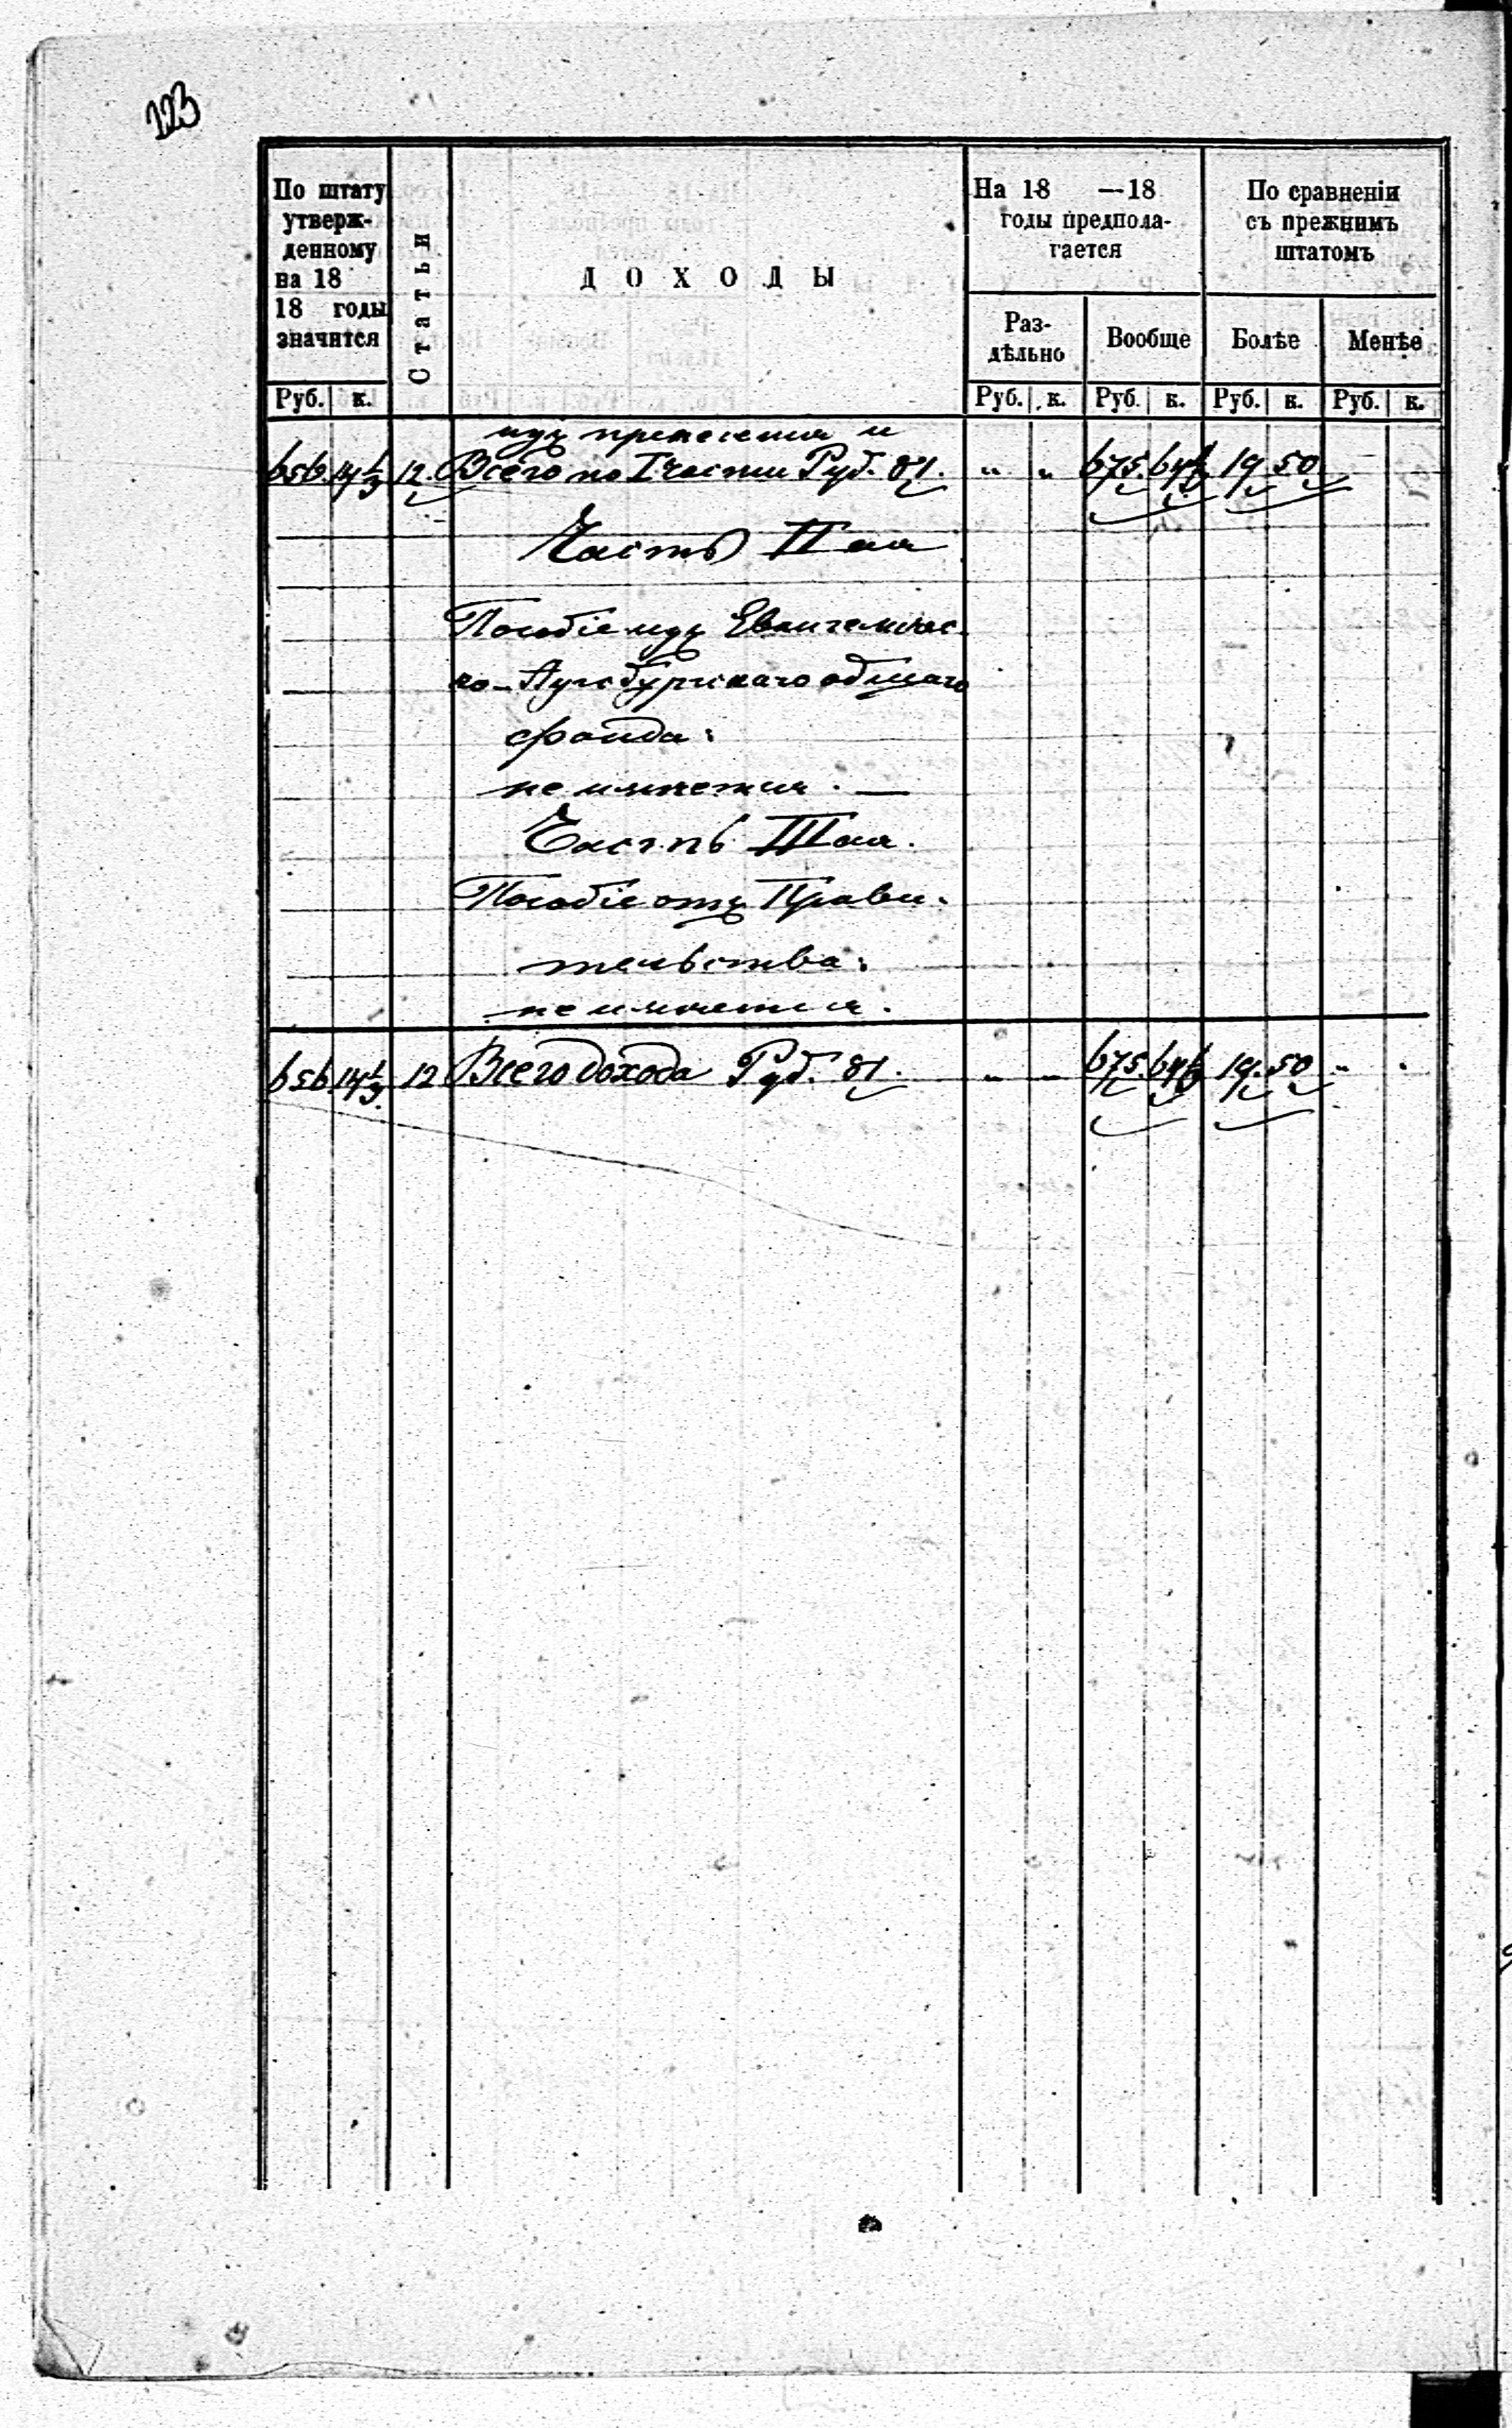 223
По штату утверж-денному на 18 18 годы значится
Статьи
ДОХОДЫ
На 18 —18 годы предпола-гается
По сравненію съ прежнимъ штатомъ
Раз-дѣльно
Вообще
Болѣе
Менѣе
Руб. к. Руб. к. Руб. к. Руб. к. Руб. к.
изъ пренесенія и
656. 14 1/3 12. Всего по I части Руб. 81. „ „ 675. 64 1/3 19 50
Часть II ая
Пособіе изъ Евангеличес-
ко-Аугсбургскаго общаго
фонда:
не имѣется. —
Часть III ая.
Пособіе отъ Прави-
тельства:
не имѣется.
656 14 1/3. 12 Всего дохода Руб. 81. „ „ 675. 64 1/3 19. 50 „ „